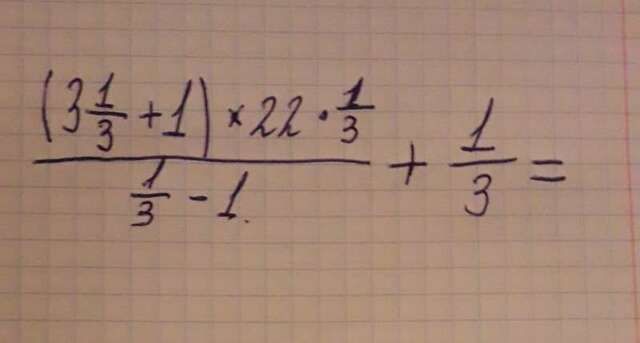 (3 1/3 + 1) × 22 · 1/3
1/3 - 1.
+ 1/3 =